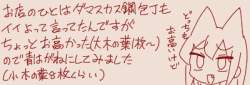 お店のひとはダマスカス鋼包丁も
イイよって言ってたんですが
ちょっとお高かった(大木の葉1枚〜)
ので青はがねにしてみました
(小木の葉8枚くらい)
どっちも
お高いけど